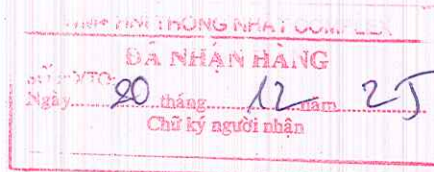 THỐNG NHẤT COMPLEX
ĐÃ NHẬN HÀNG
Ngày 20 tháng 12 năm 25
Chữ ký người nhận